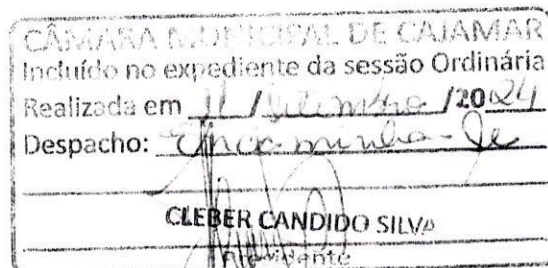 CÂMARA MUNICIPAL DE CAJAMAR
Incluído no expediente da sessão Ordinária
Realizada em 11 / setembro /2024
Despacho: Encaminha-se
CLEBER CANDIDO SILVA
Presidente